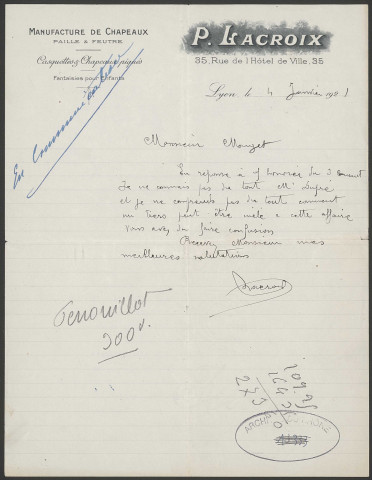 MANUFACTURE DE CHAPEAUX
PAILLE & FEUTRE
Casquettes, Chapeaux piqués
Fantaisies pour Enfants
P. LACROIX
35, Rue de l'Hôtel de Ville, 35
Lyon, le 4 Janvier 1921
En Communication
Monsieur Mouzet
En reponse à v/ honorée du 3 courant
Je ne connais pas du tout Mr Dupré
et je ne comprends pas du tout comment
un tiers peut être mêlé a cette affaire
vous avez du faire confusion
Recevez Monsieur mes
meilleures salutations
Lacroix
Penouillot
300
273
ARCH
RHÔNE